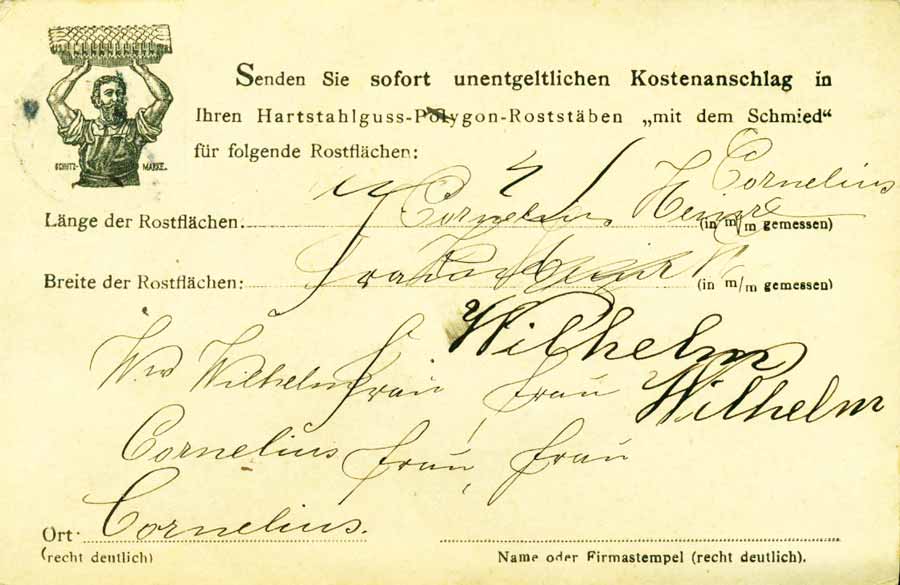 Senden Sie sofort unentgeltlichen Kostenanschlag in
Ihren Hartstahlguss-Polygon-Roststäben „mit dem Schmied“
für folgende Rostflächen:
SCHUTZ- MARKE.
Cornelius
Länge der Rostflächen: Cornelius (in m/m gemessen)
Breite der Rostflächen: (in m/m gemessen)
Wilhelm
Ww Wilhelm Frau Frau Wilhelm
Cornelius Frau, Frau
Ort: Cornelius.
(recht deutlich) Name oder Firmastempel (recht deutlich).